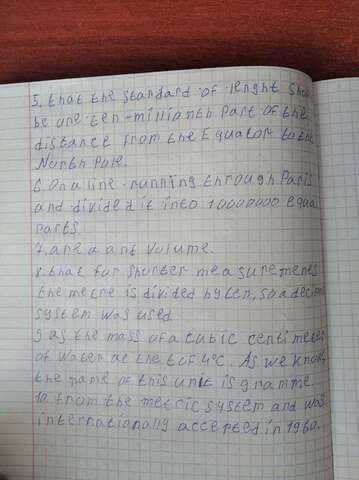 5. that the standard of lenght shou
be one ten-millionth part of the
distance from the Equator to the
North Pole.
6. On a line running through Paris
and divided it into 10000000 equa
parts
7. are a ant volume.
8. that for shorter measurements
the metre is divided by ten, so a decim
system was used
9 as the mass of a cubic centimeter
of water at the t of 4°C. As we know
the name of this unit is gramme.
10. from the metric system and was
internationally accepted in 1960.